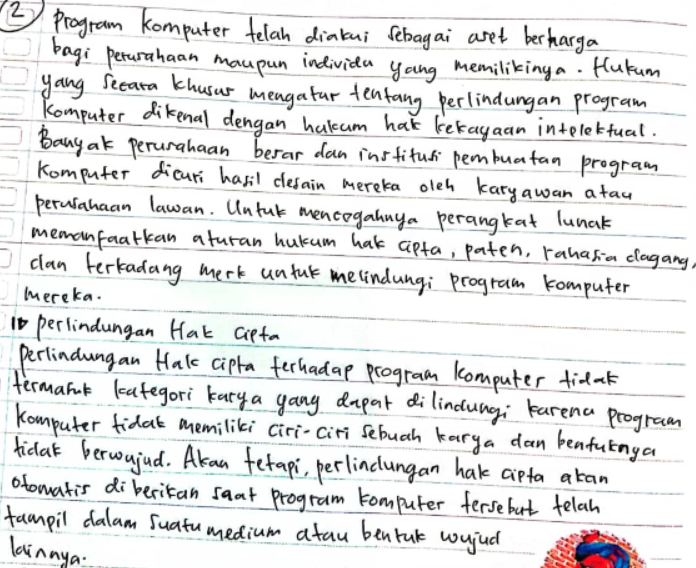 2 Program komputer telah diakui sebagai aset berharga
bagi perusahaan maupun individu yang memilikinya. Hukum
yang secara khusus mengatur tentang perlindungan program
komputer dikenal dengan hukum hak kekayaan intelektual.
Banyak perusahaan besar dan institusi pembuatan program
komputer dicuri hasil desain mereka oleh karyawan atau
perusahaan lawan. Untuk mencegahnya perangkat lunak
memanfaatkan aturan hukum hak cipta, paten, rahasia dagang,
dan terkadang merk untuk melindungi program komputer
mereka.
1. perlindungan Hak cipta
Perlindungan Hak cipta terhadap program komputer tidak
termasuk kategori karya yang dapat dilindungi karena program
komputer tidak memiliki ciri-ciri sebuah karya dan bentuknya
tidak berwujud. Akan tetapi, perlindungan hak cipta akan
otomatis diberikan saat program komputer tersebut telah
tampil dalam suatu medium atau bentuk wujud
lainnya.